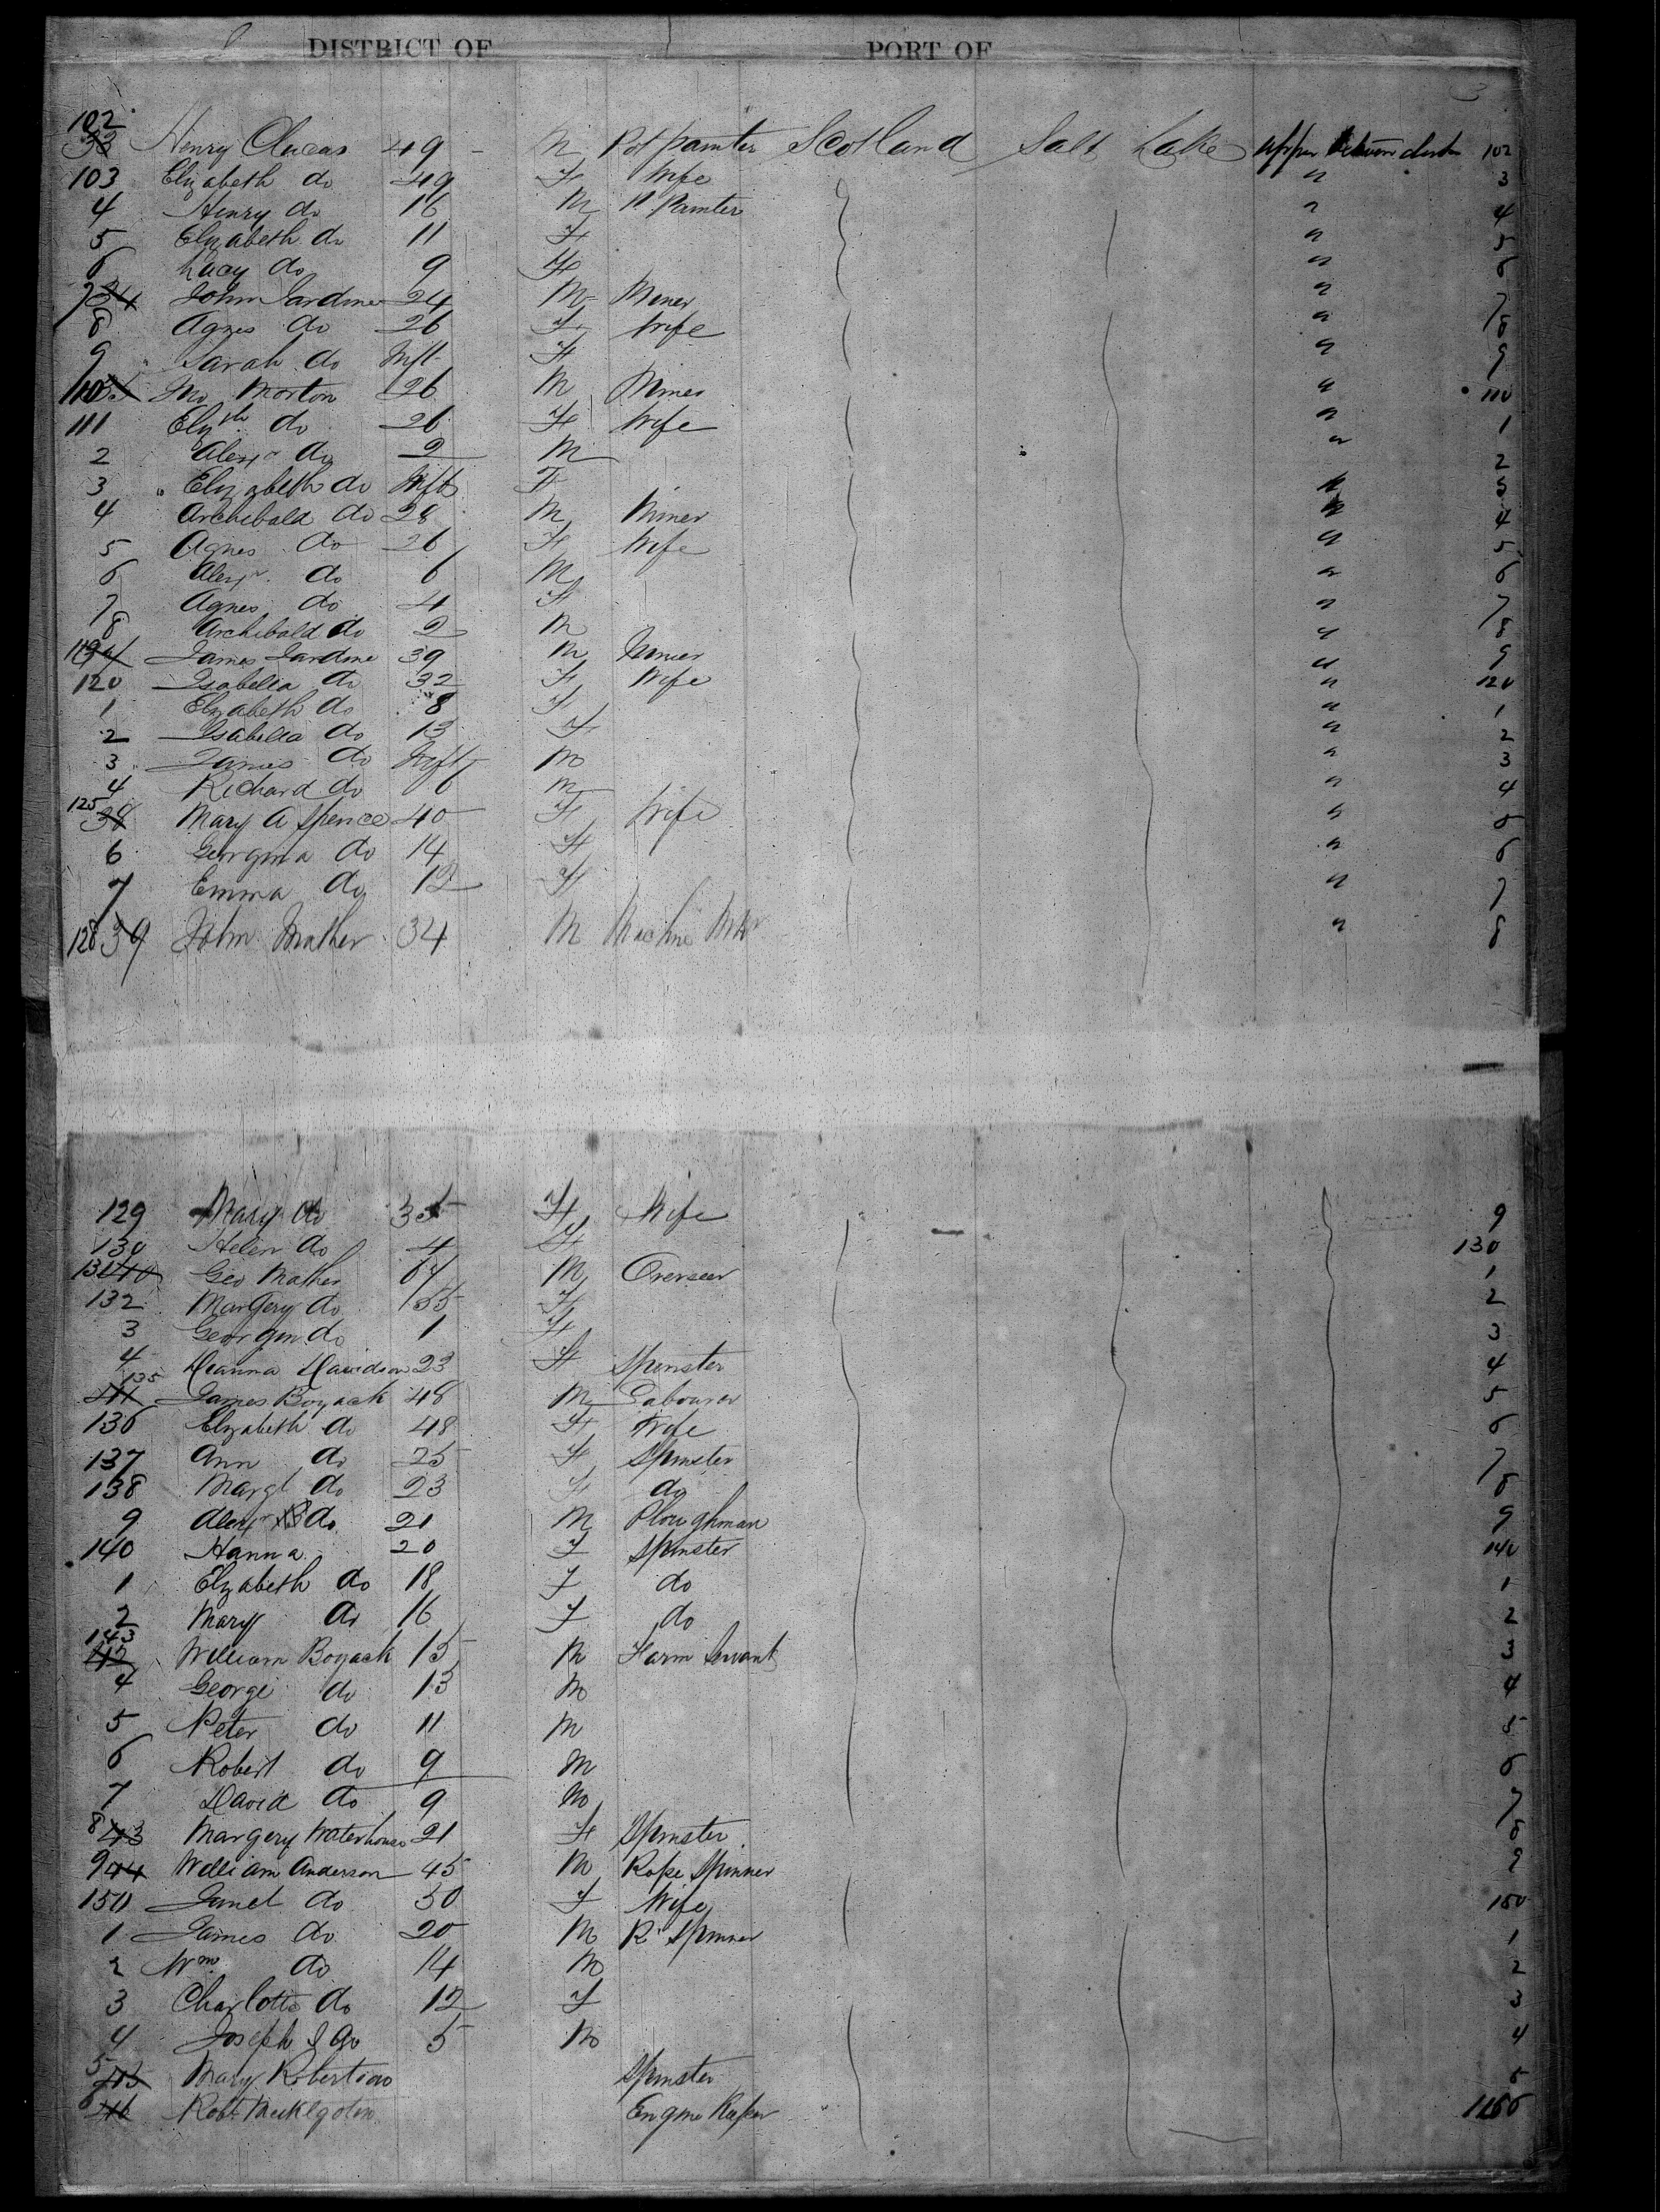 DISTRICT OF PORT OF
3
102
33 Henry Clucas 49 M Pot painter Scotland Salt Lake upper between decks 102
103 Elizabeth do 49 F Wife " 3
4 Henry do 16 M P Painter " 4
5 Elizabeth do 11 F " 5
6 Lucy do 9 F " 6
7 34 John Jardine 24 M Miner " 7
8 Agnes do 26 F Wife " 8
9 Sarah do Inft F " 9
110 Jno Morton 26 M Miner " 110
111 Elizth do 26 F Wife " 1
2 Alexr do 2 M " 2
3 Elizabeth do Inft F " 3
4 Archibald do 28 M Miner " 4
5 Agnes do 26 F Wife " 5
6 Alexr do 6 M " 6
7 Agnes do 4 F " 7
8 Archibald do 2 M " 8
119 James Jardine 39 M Miner " 9
120 Isabella do 32 F Wife " 120
1 Elizabeth do 8 F " 1
2 Isabella do 13 F " 2
3 James do Inft M " 3
4 Richard do 6 M " 4
125
38 Mary A Spence 40 F Wife " 5
6 Georgina do 14 F " 6
7 Emma do 12 F " 7
128 39 John Mather 34 M Machine Mkr " 8
129 Mary do 35 F Wife 9
130 Helen do 4 F 130
131 40 Geo Mather 64 M Overseer 1
132 Margery do 55 F 2
3 Georgin do 1 F 3
4 Deanna Davidson 23 F Spinster 4
135
41 James Boyack 48 M Labourer 5
136 Elizabeth do 48 F Wife 6
137 Ann do 25 F Spinster 7
138 Margt do 23 F do 8
9 Alexr do 21 M Ploughman 9
140 Hanna 20 F Spinster 140
1 Elizabeth do 18 F do 1
2 Mary do 16 F do 2
143
42 William Boyack 15 M Farm Servant 3
4 George do 13 M 4
5 Peter do 11 M 5
6 Robert do 9 M 6
7 David do 9 M 7
8 43 Margery Waterhouse 21 F Spinster 8
9 44 William Anderson 45 M Rope Spinner 9
150 Janet do 50 F Wife 150
1 James do 20 M R Spinner 1
2 Wm do 14 M 2
3 Charlotte do 12 F 3
4 Joseph S do 5 M 4
5 45 Mary Robertson Spinster 5
6 46 Robt Engine Keeper 156